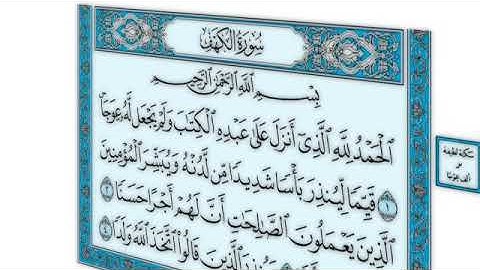 سُورَةُ الكَهْفِ
بِسْمِ اللَّهِ الرَّحْمَٰنِ الرَّحِيمِ
الْحَمْدُ لِلَّهِ الَّذِي أَنزَلَ عَلَىٰ عَبْدِهِ الْكِتَٰبَ وَلَمْ يَجْعَل لَّهُ عِوَجَا
١ قَيِّمًا لِّيُنذِرَ بَأْسًا شَدِيدًا مِّن لَّدُنْهُ وَيُبَشِّرَ الْمُؤْمِنِينَ
الَّذِينَ يَعْمَلُونَ الصَّٰلِحَٰتِ أَنَّ لَهُمْ أَجْرًا حَسَنًا ٢
وَيُنذِرَ الَّذِينَ قَالُوا اتَّخَذَ اللَّهُ وَلَدًا ٤
سكتة لطيفة
على
ألف عوجا